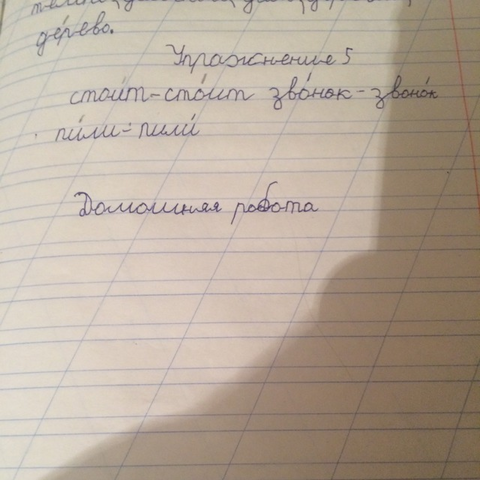 де́рево.
Упражнение 5
стои́т-сто́ит зво́нок-звоно́к
пи́ли-пили́
Домошняя работа